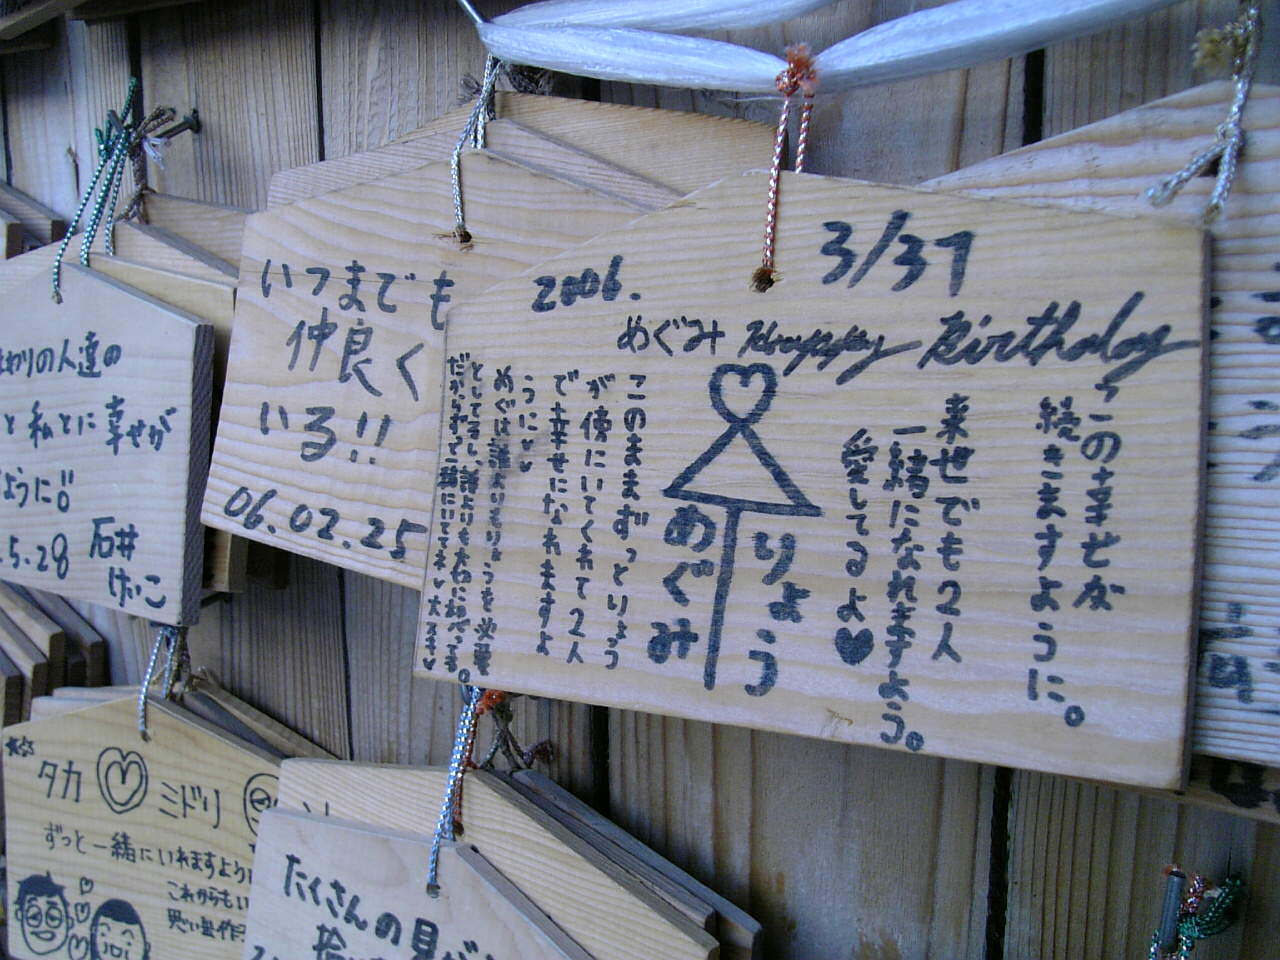 2006.
3/31
めぐみ Happy Birthday
この幸せが
続きますように。
来世でも2人
一緒になれますよう。
愛してるよ♥
りょう
めぐみ
このままずっとりょう
が傍にいてくれて2人
で幸せになれますよ
うに♥♥
めぐは誰よりもりょうを必要
としてるし、誰よりも大切に想ってる。
だからずっと一緒にいてネ♥大スキ♥
いつまでも
仲良く
いる!!
06.02.25
わりの人達の
と私とに幸せが
ように!!
.5.28 石井
けいこ
タカ ♡ ミドリ
ずっと一緒にいれますように
これからもい
思い出作
たくさんの